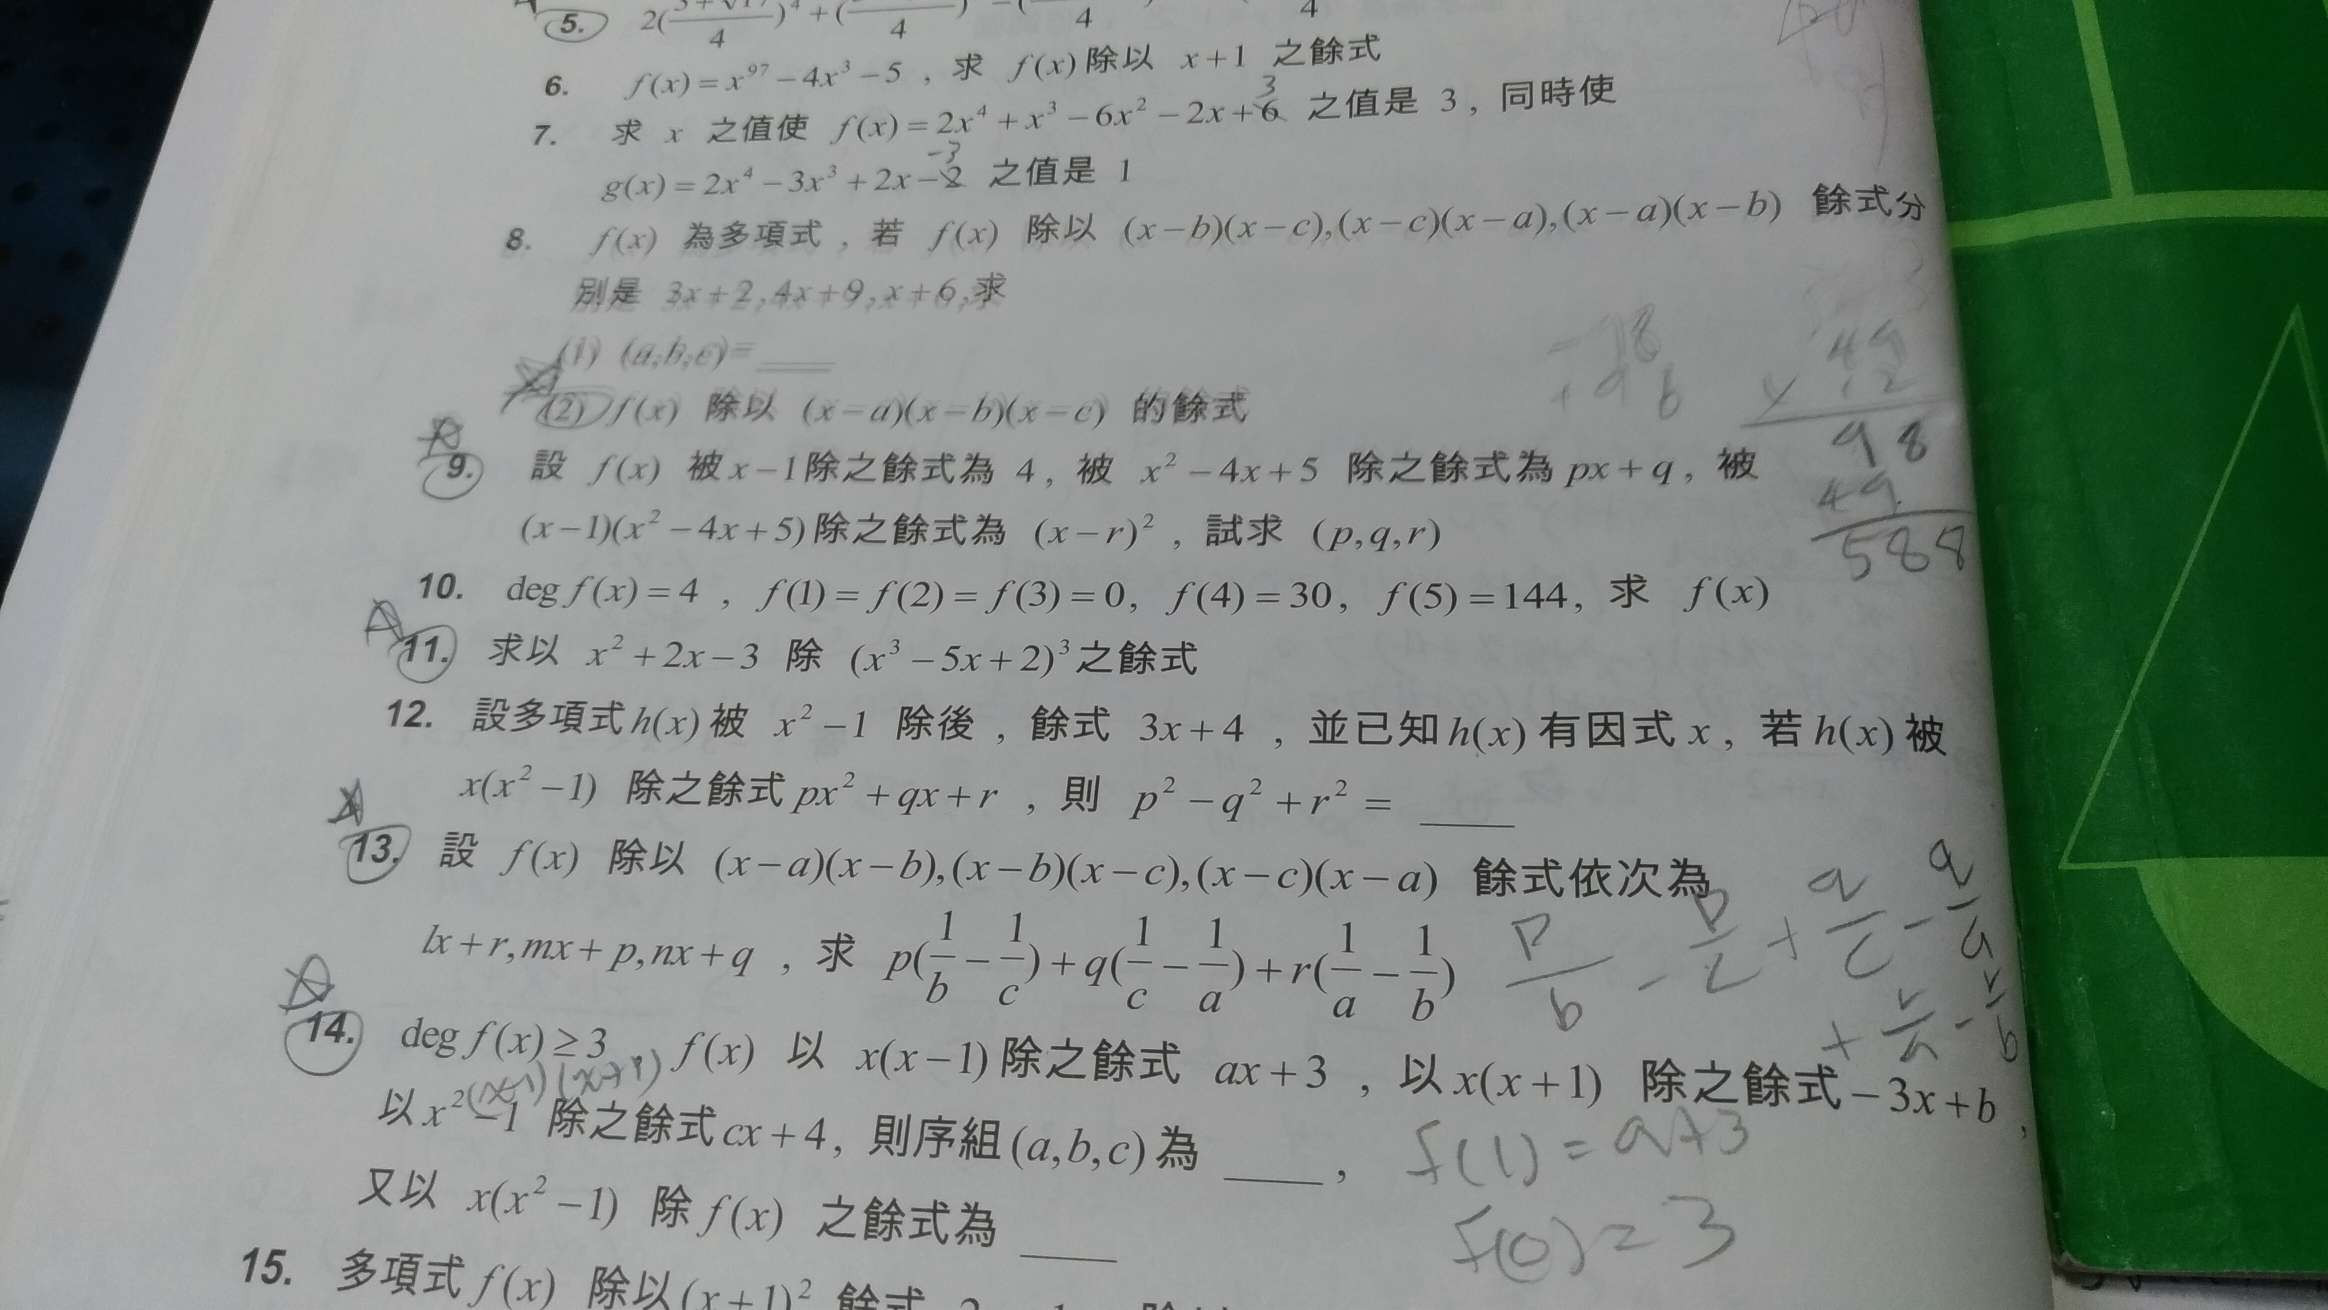 5. 2( 4 )⁴ + ( 4 ) − ( 4 4
6. f(x) = x⁹⁷ − 4x³ − 5 , 求 f(x) 除以 x+1 之餘式
3
7. 求 x 之值使 f(x) = 2x⁴ + x³ − 6x² − 2x + 6 之值是 3 , 同時使
−3
g(x) = 2x⁴ − 3x³ + 2x − 2 之值是 1
8. f(x) 為多項式 , 若 f(x) 除以 (x−b)(x−c),(x−c)(x−a),(x−a)(x−b) 餘式分
別是 3x+2,4x+9,x+6,求
(1) (a,b,c)=____
(2) f(x) 除以 (x−a)(x−b)(x−c) 的餘式
9. 設 f(x) 被 x−1 除之餘式為 4 , 被 x² − 4x + 5 除之餘式為 px + q , 被
(x−1)(x² − 4x + 5) 除之餘式為 (x−r)² , 試求 (p,q,r)
10. deg f(x) = 4 , f(1) = f(2) = f(3) = 0, f(4) = 30, f(5) = 144, 求 f(x)
11. 求以 x² + 2x − 3 除 (x³ − 5x + 2)³ 之餘式
12. 設多項式 h(x) 被 x² − 1 除後 , 餘式 3x + 4 , 並已知 h(x) 有因式 x , 若 h(x) 被
x(x² − 1) 除之餘式 px² + qx + r , 則 p² − q² + r² = ____
13. 設 f(x) 除以 (x−a)(x−b),(x−b)(x−c),(x−c)(x−a) 餘式依次為
lx + r, mx + p, nx + q , 求 p(1/b − 1/c) + q(1/c − 1/a) + r(1/a − 1/b)
14. deg f(x) ≥ 3 , f(x) 以 x(x−1) 除之餘式 ax + 3 , 以 x(x+1) 除之餘式 −3x + b ,
(x−1)(x+1)
以 x² − 1 除之餘式 cx + 4, 則序組 (a,b,c) 為 ____ ,
又以 x(x² − 1) 除 f(x) 之餘式為 ____
15. 多項式 f(x) 除以 (x+1)² 餘式
49
× 12
98
49
588
p/b − p/c + q/c − q/a
+ r/a − r/b
f(1) = a+3
f(0) = 3